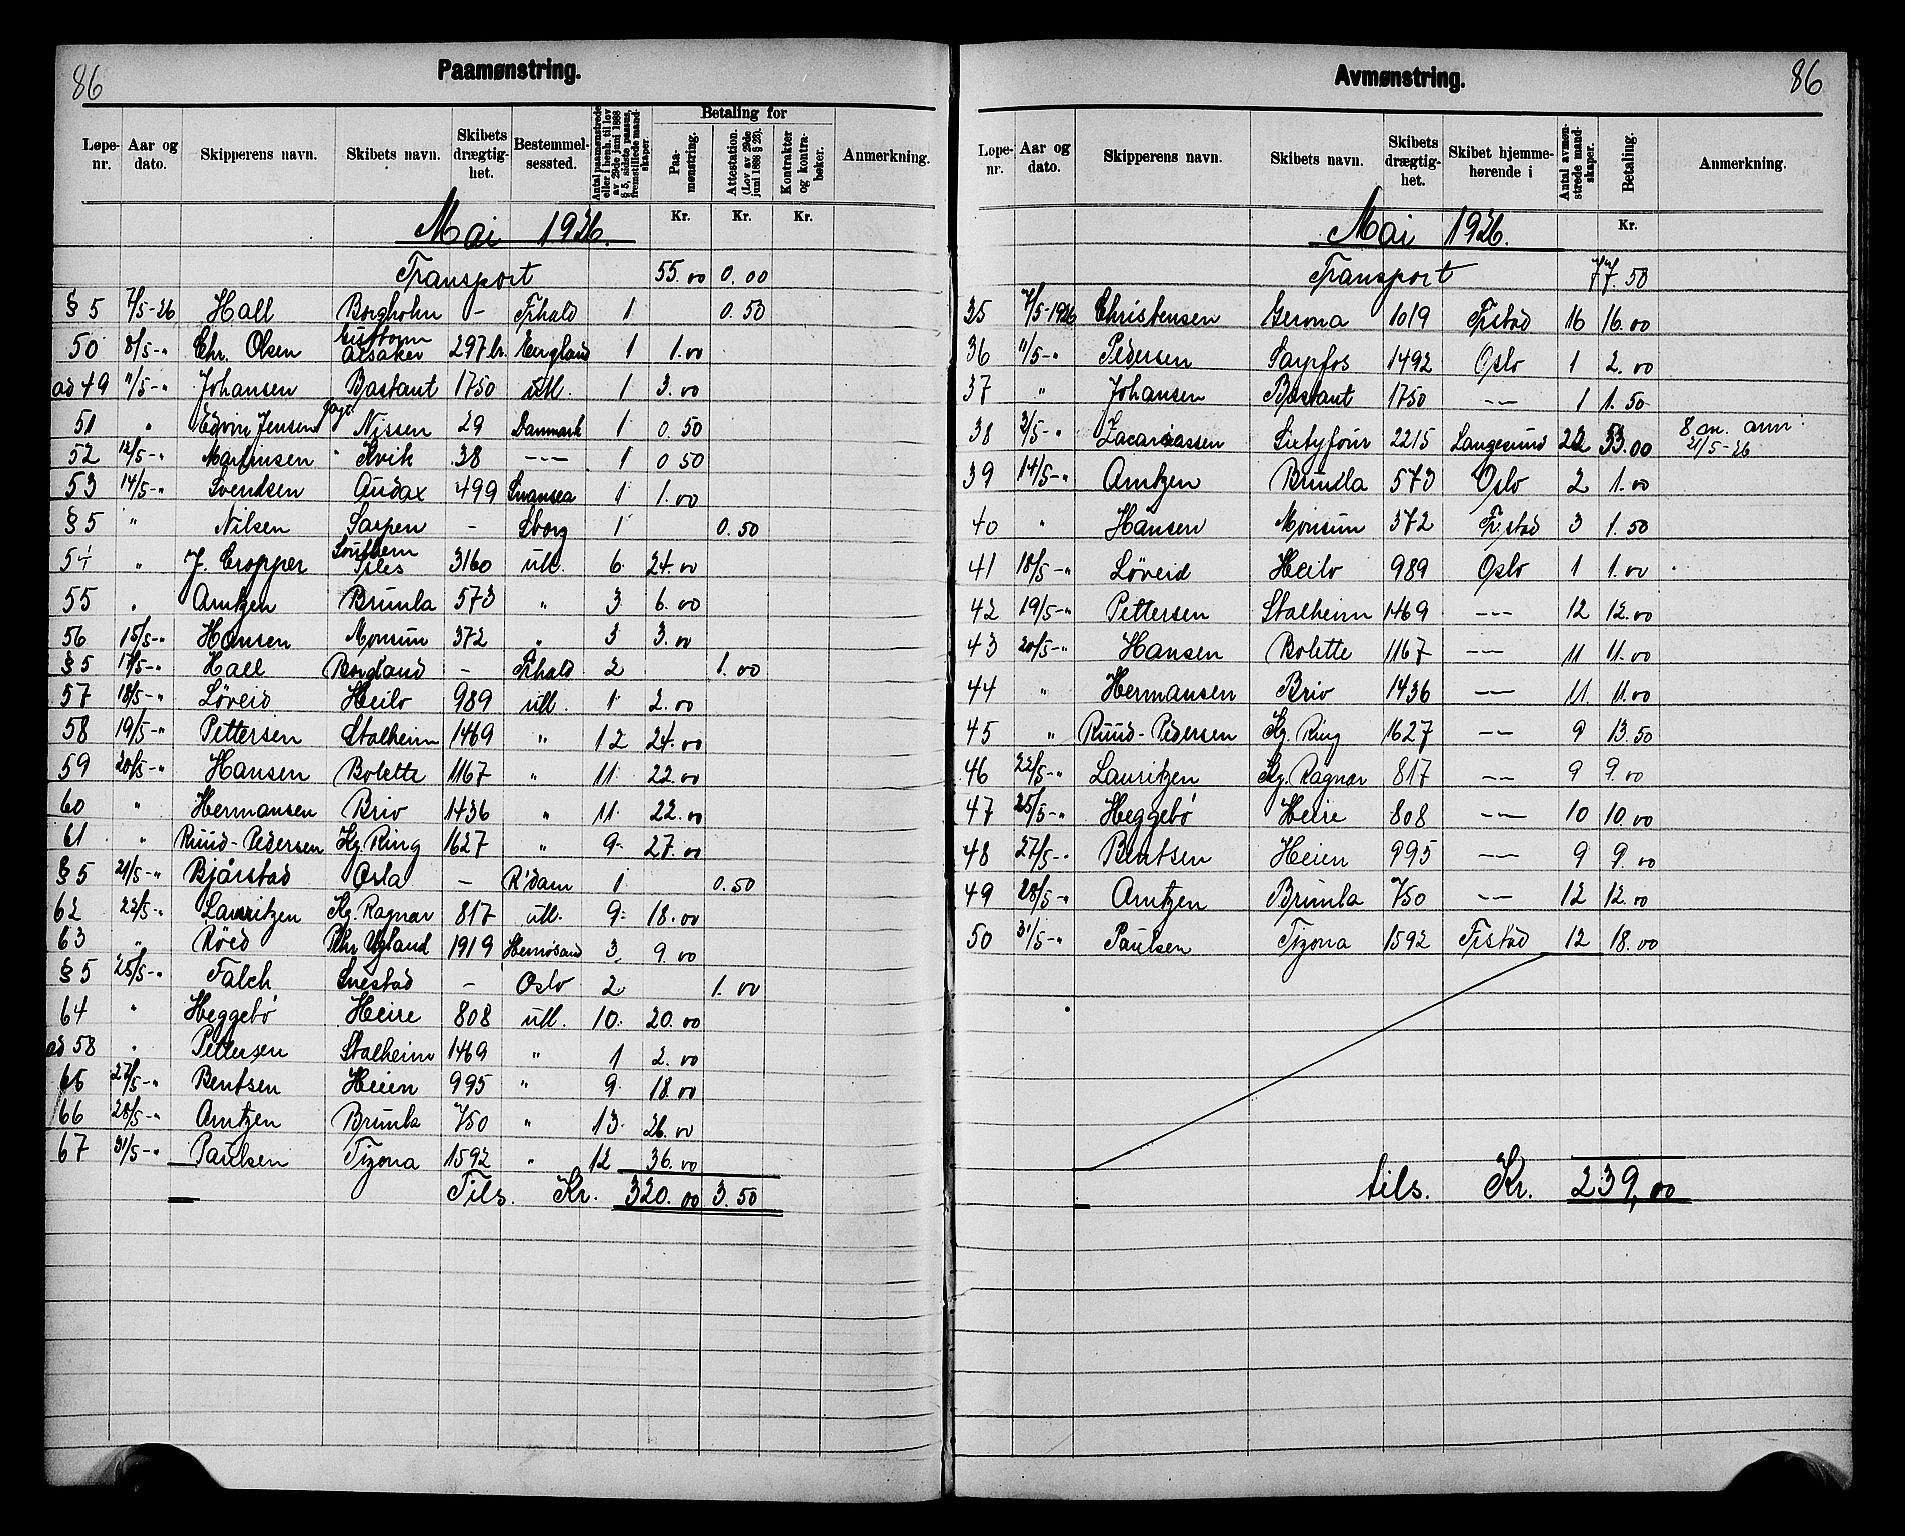 86
Paamønstring.
Løpe-nr. Aar og dato. Skipperens navn. Skibets navn. Skibets drægtighet. Bestemmelsessted. Antal paamønstrede eller i henh. til lov av 29de juni 1888 § 5, sidste passus, fremstillede mandskaper. Betaling for Paamønstring. Attestation. (Lov av 29de juni 1888 § 23). Kontrakter og kontrabøker. Anmerkning.
Kr. Kr. Kr.
Mai 1926.
Transport 55.00 0.00
§ 5 7/5-26 Hall Borgholm - Frhald 1 0.50
50 8/5-" Chr. Olsen 297 br. England 1 1.00
ad 49 11/5-" Johansen Bastant 1750 utl. 1 3.00
51 " Edvin Jensen Nissen 29 Danmark 1 0.50
52 12/5-" Martinsen Kvik 38 --- 1 0.50
53 14/5-" Svendsen Audax 499 Swansea 1 1.00
§ 5 " Nilsen Sarpen - Sborg 1 0.50
54 " J. Cropper Southern Isles 3160 utl. 6 24.00
55 " Arntzen Brumla 573 " 3 6.00
56 15/5-" Hansen Monsun 372 " 3 3.00
§ 5 17/5-" Hall Borgland - Frhald 2 1.00
57 18/5-" Løveid Heilo 989 utl. 1 2.00
58 19/5-" Pettersen Stalheim 1469 " 12 24.00
59 20/5-" Hansen Bolette 1167 " 11 22.00
60 " Hermansen Brio 1436 " 11 22.00
61 " Ruud-Pedersen Kg. Ring 1627 " 9 27.00
§ 5 21/5-" Bjårstad Osla - R'dam 1 0.50
62 22/5-" Lauritzen Kg. Ragnar 817 utl. 9 18.00
63 " Røed Ugland 1919 Hernøsand 3 9.00
§ 5 25/5-" Falch Snestad - Oslo 2 1.00
64 " Heggebö Heire 808 utl. 10 20.00
ad 58 " Pettersen Stalheim 1469 " 1 2.00
65 27/5-" Bentsen Heien 995 " 9 18.00
66 28/5-" Arntzen Brumla 750 " 13 26.00
67 31/5-" Paulsen Tizona 1592 " 12 36.00
Tils. Kr. 320.00 3.50
Avmønstring.
86
Løpe-nr. Aar og dato. Skipperens navn. Skibets navn. Skibets drægtighet. Skibet hjemmehørende i Antal avmønstrede mandskaper. Betaling. Anmerkning.
Kr.
Mai 1926.
Transport 77.50
35 7/5-1926 Christensen Gerona 1019 Frstad 16 16.00
36 11/5-" Pedersen Sarpfos 1492 Oslo 1 2.00
37 " Johansen Bastant 1750 --- 1 1.50
38 3/5-" Zacariassen Sixtyfour 2215 Langesund 22 53.00 8 m. ann: 21/5-26
39 14/5-" Arntzen Brumla 573 Oslo 2 1.00
40 " Hansen Monsun 372 Frstad 3 1.50
41 18/5-" Løveid Heilo 989 Oslo 1 1.00
42 19/5-" Pettersen Stalheim 1469 --- 12 12.00
43 20/5-" Hansen Bolette 1167 --- 11 11.00
44 " Hermansen Brio 1436 --- 11 11.00
45 " Ruud-Pedersen Kg. Ring 1627 --- 9 13.50
46 22/5-" Lauritzen Kg. Ragnar 817 --- 9 9.00
47 25/5-" Heggebö Heire 808 --- 10 10.00
48 27/5-" Bentsen Heien 995 --- 9 9.00
49 28/5-" Arntzen Brumla 750 --- 12 12.00
50 31/5-" Paulsen Tizona 1592 Frstad 12 18.00
tils. Kr. 239,00